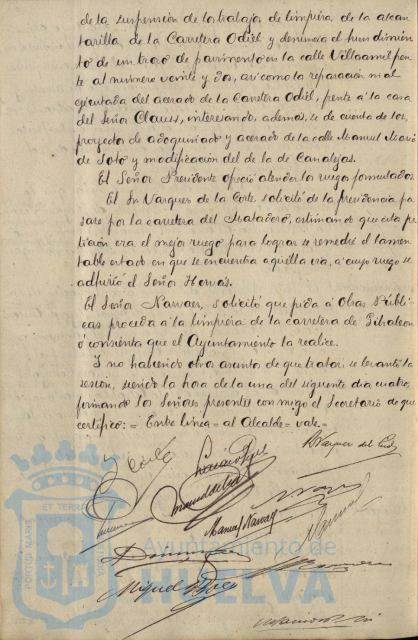 de la suspensión de los trabajos de limpieza de la alcan
tarilla de la Carretera Odiel y denuncia el hundimien
to de un trozo de pavimento en la calle Villaamil fren
te al numero veinte y dos, así como la reparación mal
ejecutada del acerado de la Carretera Odiel, frente a la casa
del Señor Clauss, interesando, además, se de cuenta de los
proyectos de adoquinado y acerado de la calle Manuel Mari
de Soto y modificación del de la de Canalejas.
El Señor Presidente ofreció atender los ruegos formulados.
El Sr. Vazques de la Corte solicitó de la presidencia pa
sase por la carretera del Matadero, estimando que esta pe
tición era el mejor ruego para lograr se remedie el lamen
table estado en que se encuentra aquella via, a cuyo ruego se
adhirió el Señor
El Señor Narvaez, solicitó que pida a Obras Públi
cas proceda a la limpieza de la carretera de Gibraleon
ó consienta que el Ayuntamiento la realice.
Y no habiendo otros asuntos de que tratar, se levanta la
sesión, siendo la hora de la una del siguiente dia cuatro,
firmando los Señores presentes conmigo el Secretario de que
certifico: = Entre linea = al Alcalde = vale =
Vázquez del
Manuel Narvaez
Miguel
PORTUS MARIS ET TERRAE
Ayuntamiento de
HUELVA